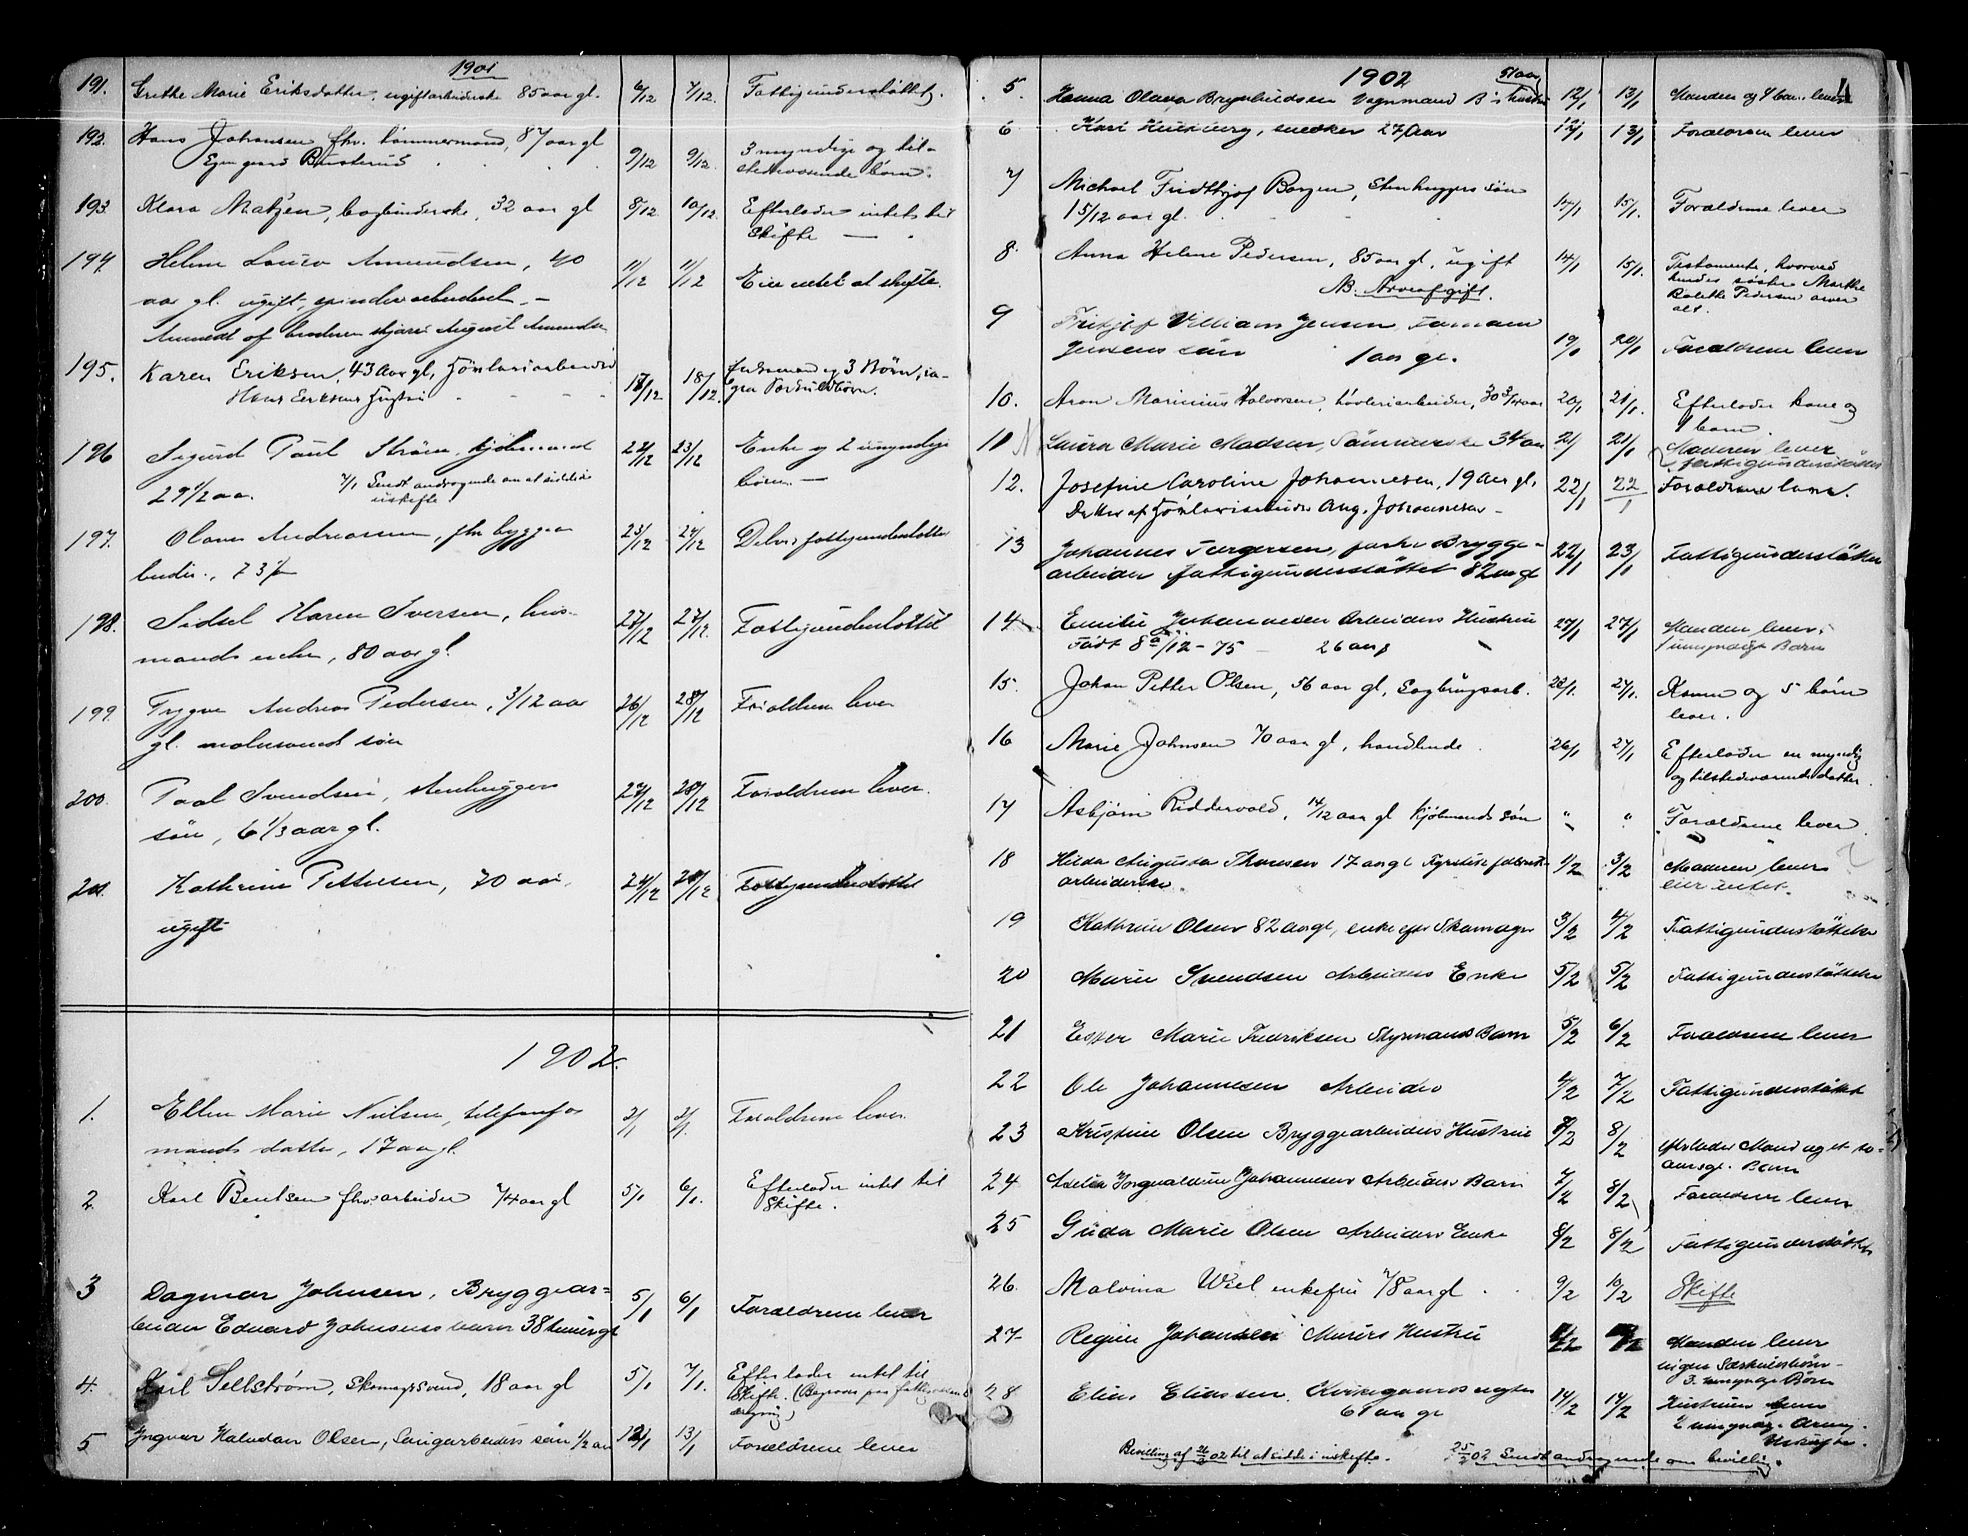 1901
191. Grethe Marie Eriksdatter, ugift arbeiderske 85 aar gl. 6/12 7/12. Fattigunderstøttet.
192. Hans Johansen fhv. tømmermand, 87 aar gl
Egen gaard 9/12 9/12. 3 myndige og til-
stedeværende børn.
193. Klara Matzen, bogbinderske, 32 aar gl 8/12 10/12. Efterlader intet til
Skifte —
194 Helene Amundsen, 40 11/12 11/12 Eier intet at skifte.
aar gl. ugift
Anmeldt af broderen August Amundsen
195. Karen Eriksen, 43 Aar gl, Høvleriarbeider
Hans Eriksens Hustru 17/12 18/12. og 3 Børn, in-
gen Særkuldbørn.
196 Sigurd Paul Strøm, kjøbmand 22/12 23/12 Enke og 2 umyndige
29 1/2 aar. 7/1 Sendt andragende om at sidde i børn. —
uskifte
197. Andreassen, fhv brygge- 23/12 24/12 Delvis fattigunderstøttet
arbeider., 73
198. Sidsel Karen Iversen, hus- 27/12 27/12. Fattigunderstøttet
mands enke, 80 aar gl.
199. Trygve Andreas Pedersen, 3/12 aar 26/12 28/12 Forældrene lever
gl. søn
200. Paal Svendsen, stenhuggers 27/12 28/12 Forældrene lever.
søn, 6 1/3 aar gl.
201. Kathrine Pettersen, 70 aar, 24/12 28/12 Fattigunderstøttet
ugift
1902.
1. Ellen Marie Nielsen, telefonfor- 2/1 2/1. Forældrene lever.
mands datter, 17 aar gl.
2. Karl Bentsen fhv. arbeider 74 aar gl 5/1 6/1. Efterlader intet til
Skifte.
3 Dagmar Johnsen, Bryggear- 5/1 6/1 Forældrene lever
beider Edvard Johnsens barn 38 timer gl
4. Karl Sellstrøm, Skomagersvend, 18 aar gl 5/1 7/1. Efterlader intet til
Skifte. (Begraves paa fattigvæsenets
regning)
5 Ingvar Halvdan Olsen, Saugarbeiders søn 1/2 aar 12/1 13/1 Forældrene lever
1902
5. Hanna Olava Brynhildsen Vognmand B's Hustru 51 aar 12/1 13/1 Manden og 4 barn lever
6 Karl snedker 27 Aar 12/1 13/1 Forældrene lever
7 Michael Fridthjof Borgen, Stenhuggers søn
1 5/12 aar gl. 14/1 15/1. Forældrene lever
8. Anna Helene Pedersen, 85 aar gl, ugift 14/1 15/1. Testamente, hvorved
NB. Arveafgift. hendes søster Marthe
Bolette Pedersen arver
alt.
9 Fritjof William Jensen, Formand
Jensens søn 1 aar gl. 19/1 20/1 Forældrene lever
10. Aron Marinius Halvorsen, høvleriarbeider, 30 3/4 aar 20/1 21/1. Efterlader kone og
4 barn.
11 Laura Marie Madsen, Sømmerske 34 aar 21/1 21/1 Moderen lever
fattigunderstøttet
12. Josefine Caroline Johannesen, 19 Aar gl. 22/1 22/1 Forældrene leve.
Datter af Høvleriarbeider Aug. Johannesen —
13 Johannes Torgersen, forhv Brygge- 22/1 23/1 Fattigunderstøttet
arbeider fattigunderstøttet 82 aar gl
14. Emilie Johannesen Arbeiders Hustru 27/1 27/1 Manden lever.
Født 8de/12 - 75 — 26 aar 1 umyndigt Barn
15. Johan Petter Olsen, 56 aar gl, Sagbrugsarb. 26/1. 27/1. Konen og 5 børn
lever.
16 Marie Johnsen 70 aar gl, handlende. 26/1 27/1 Efterlader en myndig
og tilstedeværende datter.
17 Asbjørn Riddervold, 14/12 aar gl kjøbmands søn " " Forældrene lever.
18 Hilda Augusta Thoresen 17 aar gl Fyrstikfabrik- 1/2 3/2 Moderen lever
arbeiderske. eier intet.
19 Kathrine Olsen 82 Aar gl, enke efter Skomager 3/2 4/2 Fattigunderstøttelse
20 Marie Svendsen Arbeiders Enke 5/2 5/2 Fattigunderstøttelse
21 Ester Marie Fredriksen Styrmands Barn 5/2 6/2 Forældrene lever
22 Ole Johannesen Arbeider 4/2 7/2 Fattigunderstøttet
23 Kristine Olsen Bryggearbeiders Hustru 7/2 8/2 efterlader Mand og et to-
aarsgl. Barn
24 Johannesen Arbeiders Barn 7/2 8/2 Forældrene lever
25 Gùda Marie Olsen Arbeiders Enke 8/2 8/2 Fattigunderstøttet
26. Malvina Wiel enkefru 78 aar gl. 9/2 10/2 Skifte
27 Regine Johansen Murers Hustru Manden lever
ingen Særkuldbørn
3 umyndige Børn
28 Elias Eliassen 14/2 14/2 Hustruen lever
61 aar gl
Uskifte.
Bevilling af 26/2 02 til at sidde i uskifte. 25/2 02 Sendt andragende om bevilling.